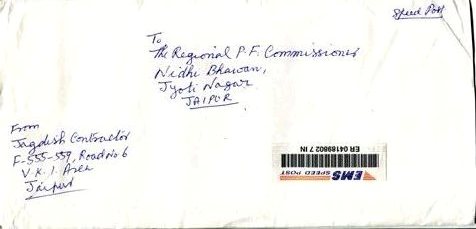 Speed Post
To
The Regional P.F. Commissioner
Nidhi Bhawan,
Jyoti Nagar
JAIPUR
From
Jagdish Contractor
F-555-559, Road No 6
V.K.I. Area
Jaipur
ER 04189802 7 IN
EMS
SPEED POST